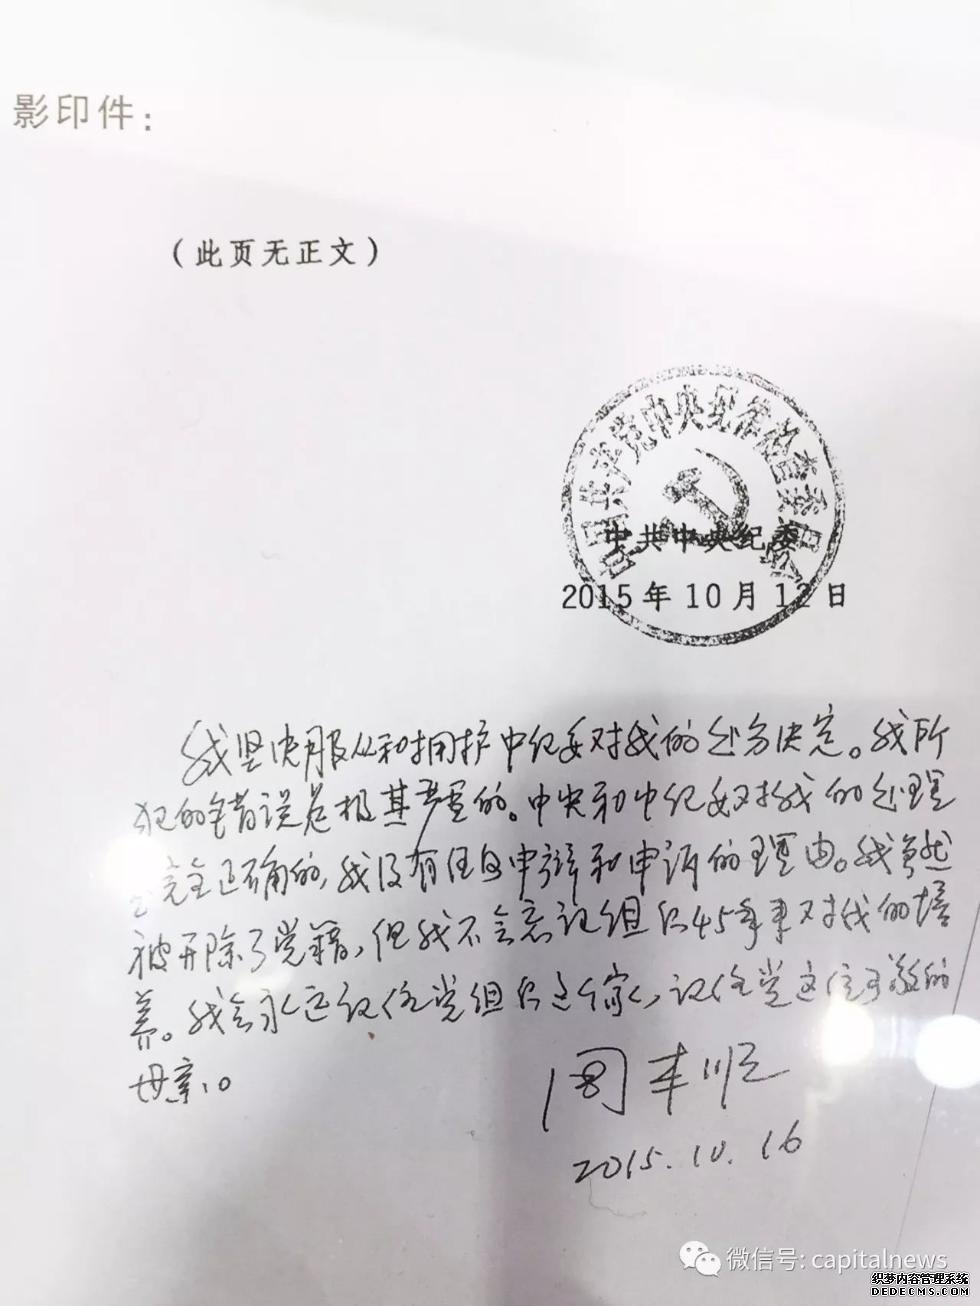 影印件:
(此页无正文)
中国共产党中央纪律检查委员会
中共中央纪委
2015年10月12日
我坚决服从和拥护中纪委对我的处分决定。我所
犯的错误是极其严重的。中央和中纪委对我的处理
是完全正确的,我没有任何申辩和申诉的理由。我虽然
被开除了党籍,但我不会忘记组织45年来对我的培
养。我会永远记住党组织这个家,记住党这位可敬的
母亲。
周本顺
2015.10.16
微信号: capitalnews
织梦内容管理系统
DEDECMS.COM